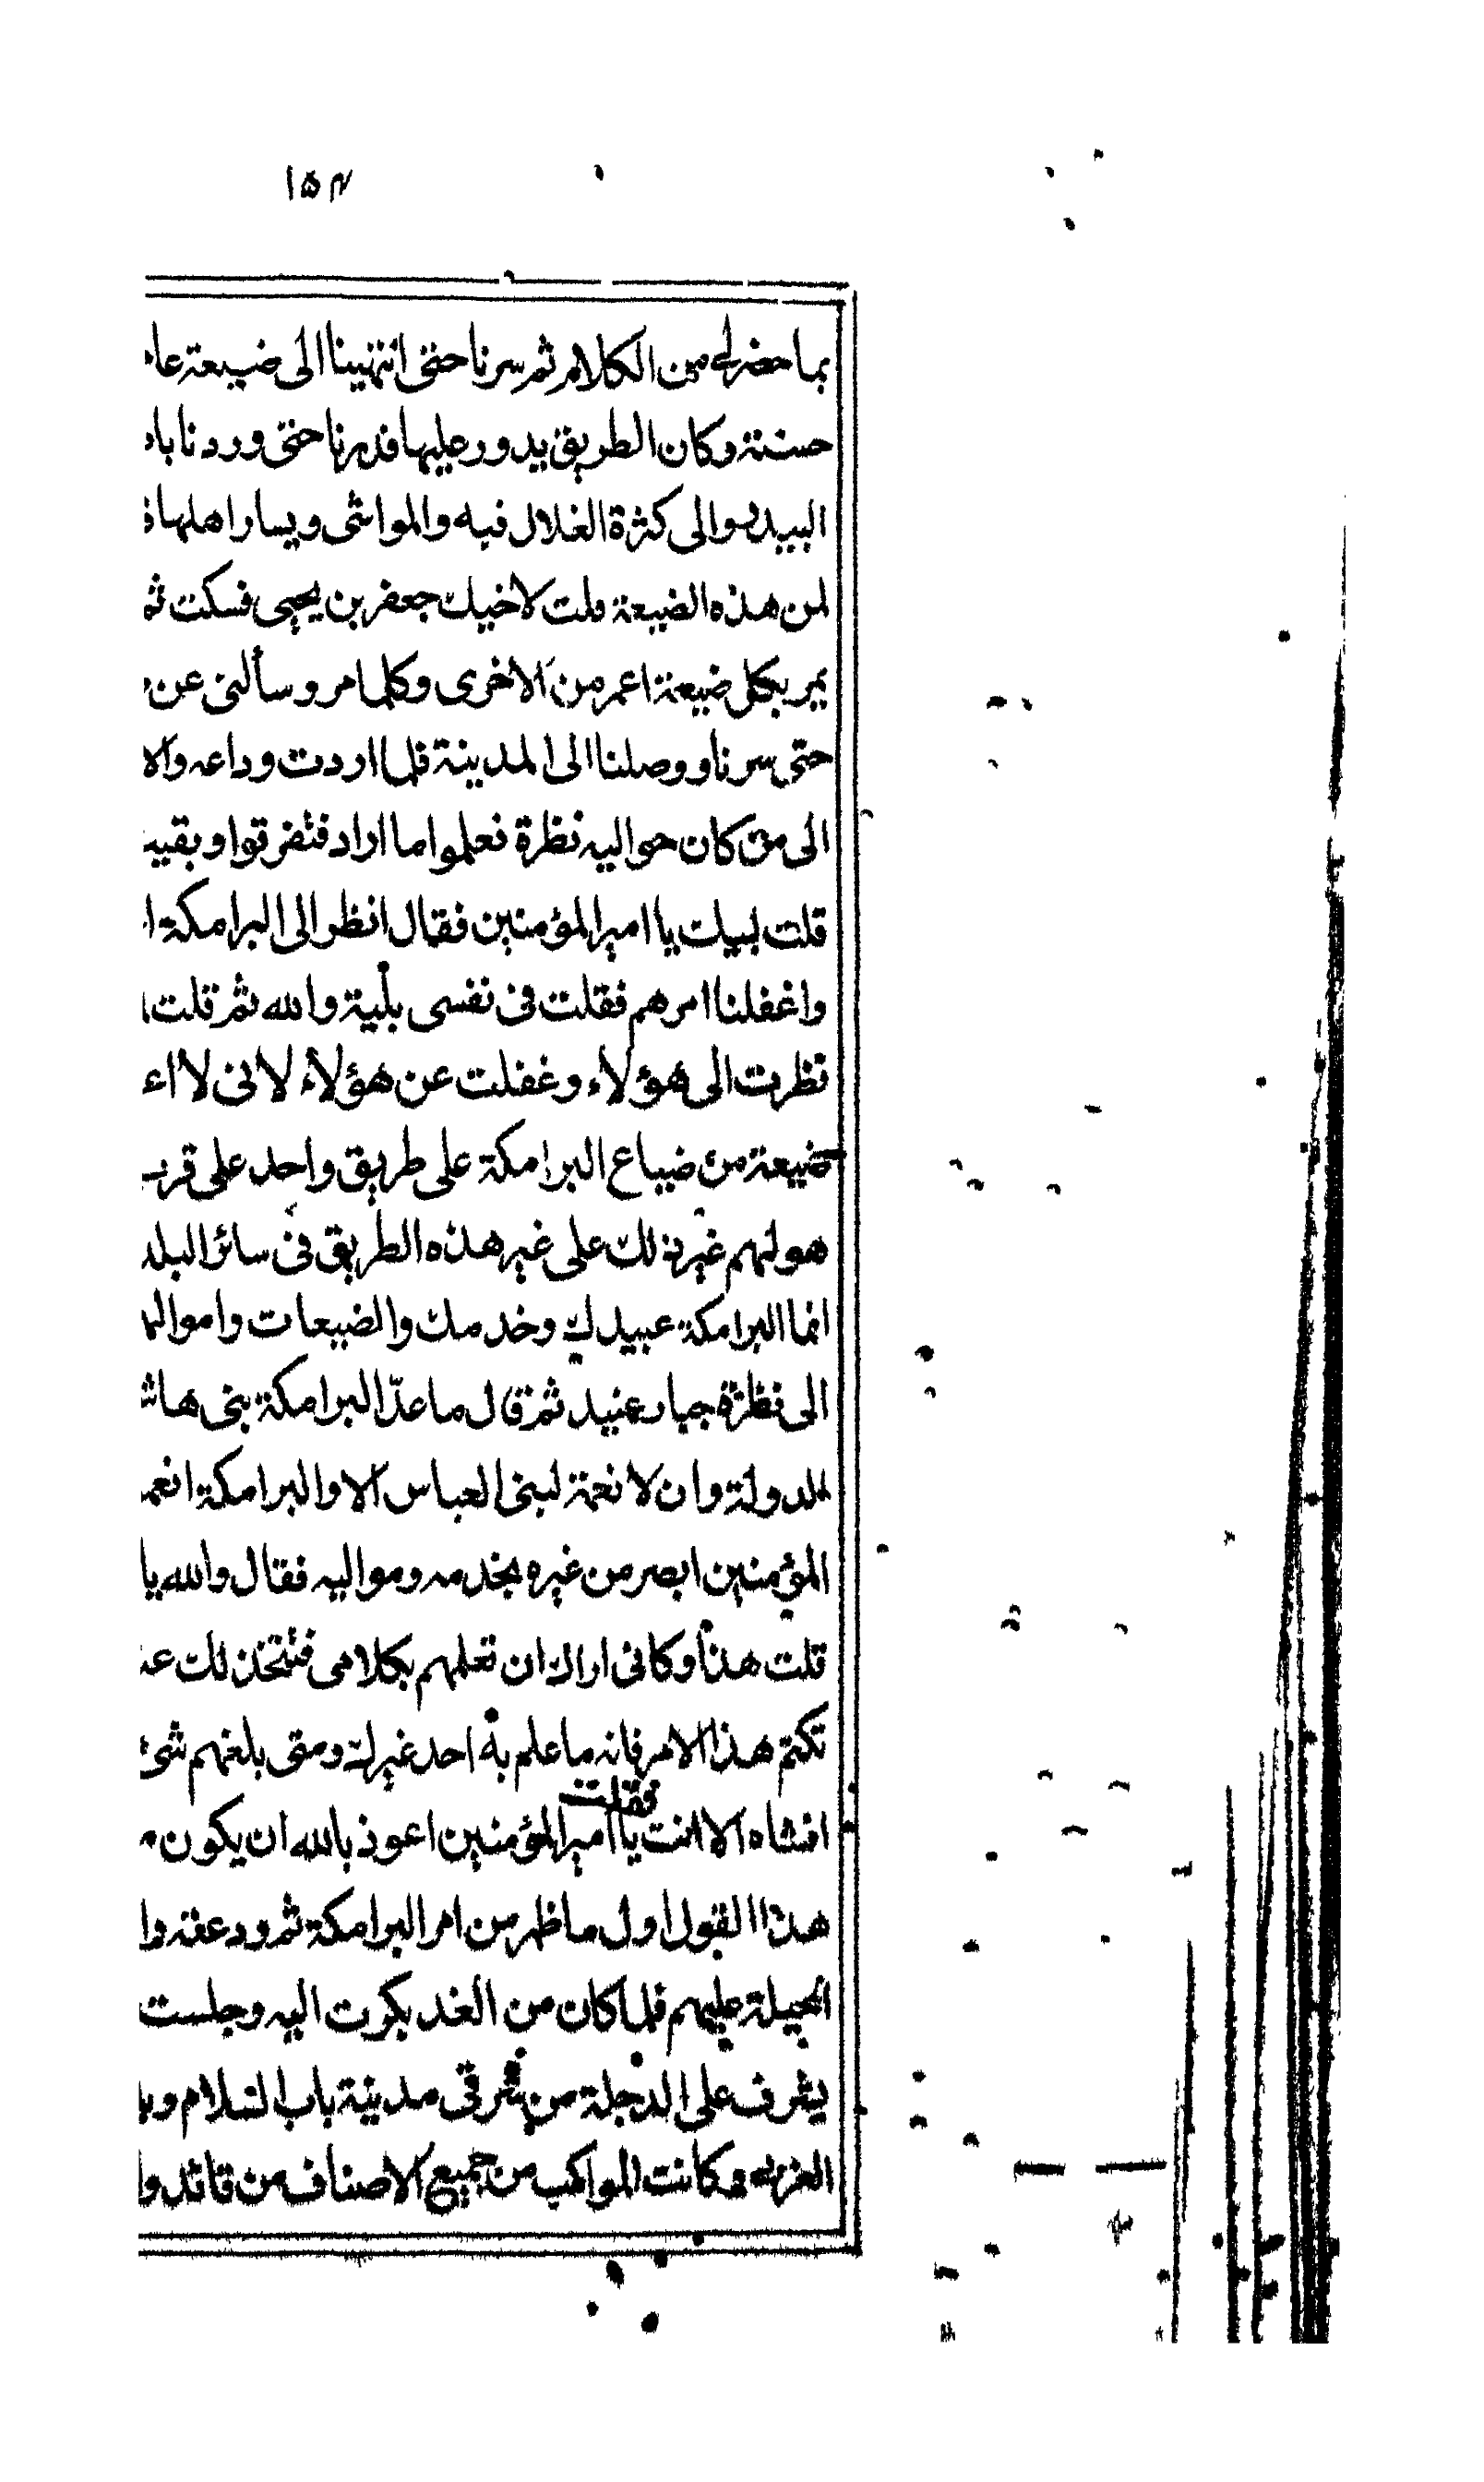 ۱۵۴
بما حضرلی من الکلام ثم سرنا حتی انتهینا الی ضیعة عا
حسنة و کان الطریق یدور علیها فدرنا حتی وردنا باد
البیدر والی کثرة الغلال فیه والمواشی ویسار اهلها
لمن هذه الضیعة قلت لاخیك جعفر بن یحیی فسکت ثم
یمر بکل ضیعة اعمر من الاخری وکلما مر وسألنی عن
حتی سرنا ووصلنا الی المدینة فلما اردت وداعه والا
الی من کان حوالیه نظرة فعلموا ما اراد فتفرقوا وبقیت
قلت لبیك یا امیر المؤمنین فقال انظر الی البرامکة ا
واغفلنا امرهم فقلت فی نفسی بلیة والله ثم قلت
نظرت الی هؤلاء وغفلت عن هؤلاء لانی لا اع
ضیعة من ضیاع البرامکة علی طریق واحد علی قرب
هو لهم غیر ذلك علی غیر هذه الطریق فی سائر البلد
انما البرامکة عبیدك وخدمك والضیعات واموالهم
الی نظرة جبار عنید ثم قال ما عدّ البرامکة بنی هاش
الدولة وان لا نعمة لبنی العباس الا والبرامکة انعم
المؤمنین ابصر من غیره بخدمه وموالیه فقال والله یا
قلت هذا وکانی اراك ان تعلمهم بکلامی فتتخذ لك عند
تکتم هذا الامر فانه ما علم به احد غیرك ومتی بلغهم شیء
افشاه الا انت فقلت یا امیر المؤمنین اعوذ بالله ان یکون م
هذا القول اول ما ظهر من امر البرامکة ثم ودعته وا
الحیلة علیهم فلما کان من الغد بکرت الیه وجلست
یشرف علی الدجلة من شرقی مدینة باب السلام و
الغربی وکانت المواکب من جمیع الاصناف من قائد وا